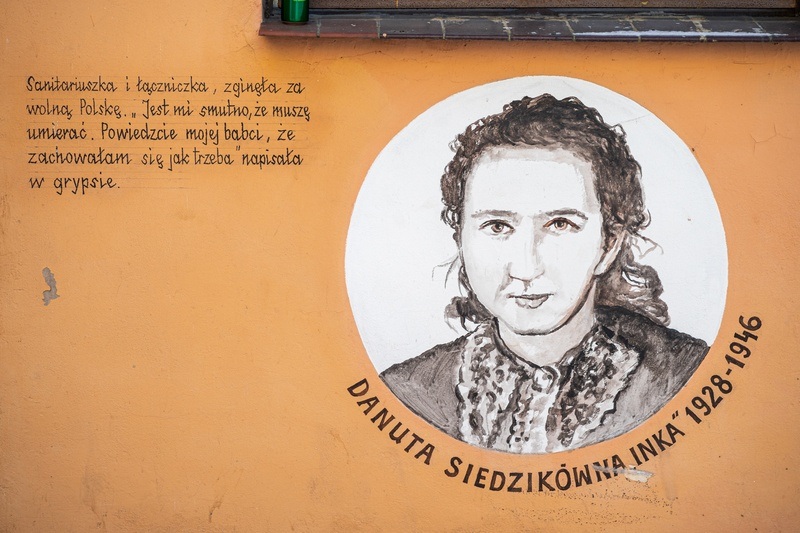 Sanitariuszka i łączniczka, zginęła za
wolną Polskę. „Jest mi smutno, że muszę
umierać. Powiedzcie mojej babci, że
zachowałam się jak trzeba" napisała
w grypsie.
DANUTA SIEDZIKÓWNA INKA" 1928-1946